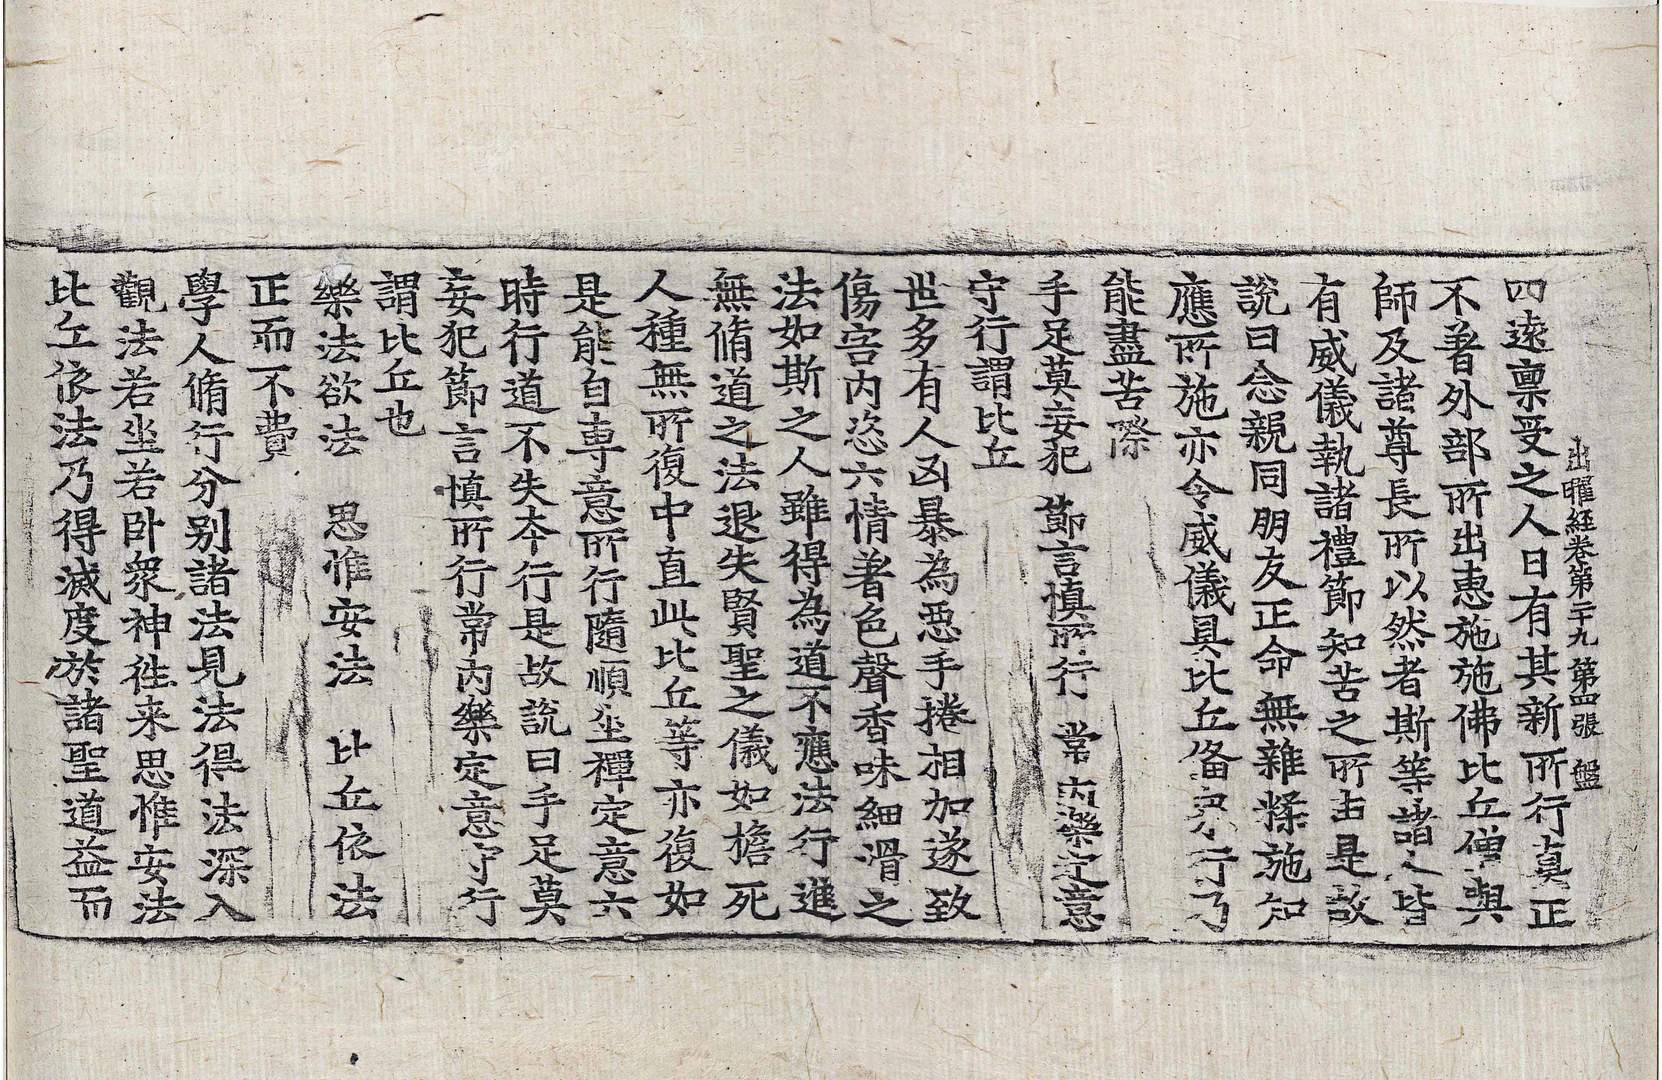 出曜經卷第二十九 第四張 盤
四遠稟受之人日有其新所行真正
不著外部所出惠施施佛比丘僧與
師及諸尊長所以然者斯等諸人皆
有威儀執諸禮節知苦之所由是故
說曰念親同朋友正命無雜糅施知
應所施亦令威儀具比丘備眾行乃
能盡苦際
手足莫妄犯 節言慎所行 常內樂定意
守行謂比丘
世多有人凶暴為惡手捲相加遂致
傷害內恣六情著色聲香味細滑之
法如斯之人雖得為道不應法行進
無脩道之法退失賢聖之儀如擔死
人種無所復中直此比丘等亦復如
是能自專意所行隨順坐禪定意六
時行道不失本行是故說曰手足莫
妄犯節言慎所行常內樂定意守行
謂比丘也
樂法欲法 思惟安法 比丘依法
正而不費
學人脩行分別諸法見法得法深入
觀法若坐若臥眾神往来思惟安法
比丘依法乃得滅度於諸聖道益而